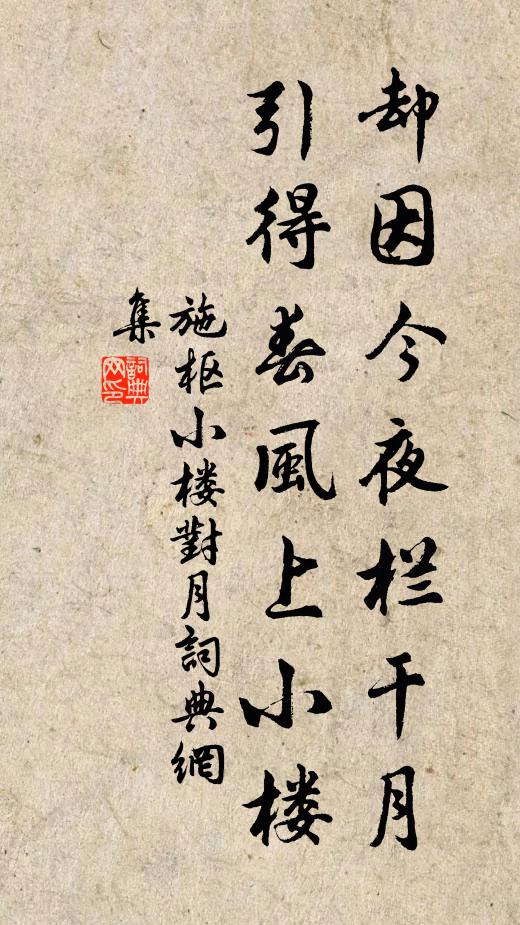 却因今夜栏干月
引得春風上小楼
施枢小楼對月詞典網
集
詞典
网印